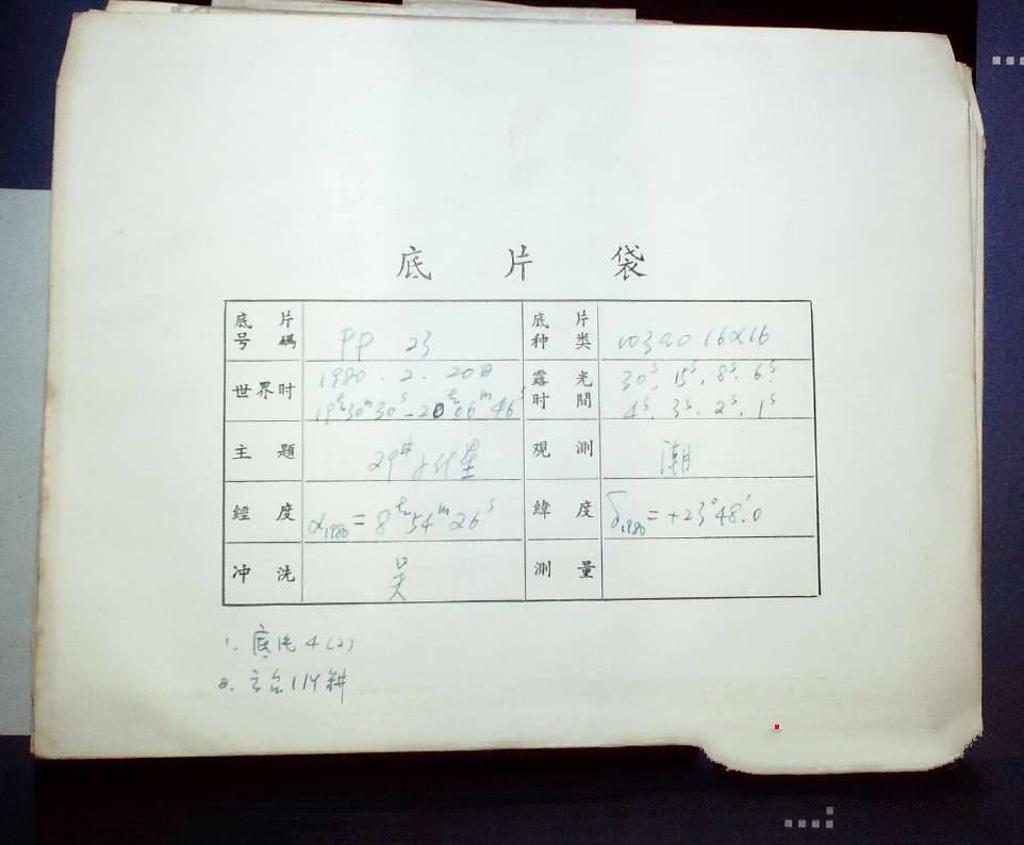 底 片 袋
底 片 号 碼
PP 23
底 片 种 类
103aO 16×16
世界时
1980 . 2 . 20日
19ʰ30ᵐ30ˢ-20ʰ06ᵐ46ˢ
露 光 时 間
30ˢ. 15ˢ. 8ˢ. 6ˢ.
4ˢ. 3ˢ. 2ˢ. 1ˢ
主 題
29# 星
观 测
潮
經 度
α₁₉₈₀ = 8ʰ54ᵐ26ˢ
緯 度
δ₁₉₈₀ = +23°48′.0
冲 洗
吴
测 量
1. 底片 4(2)
2.